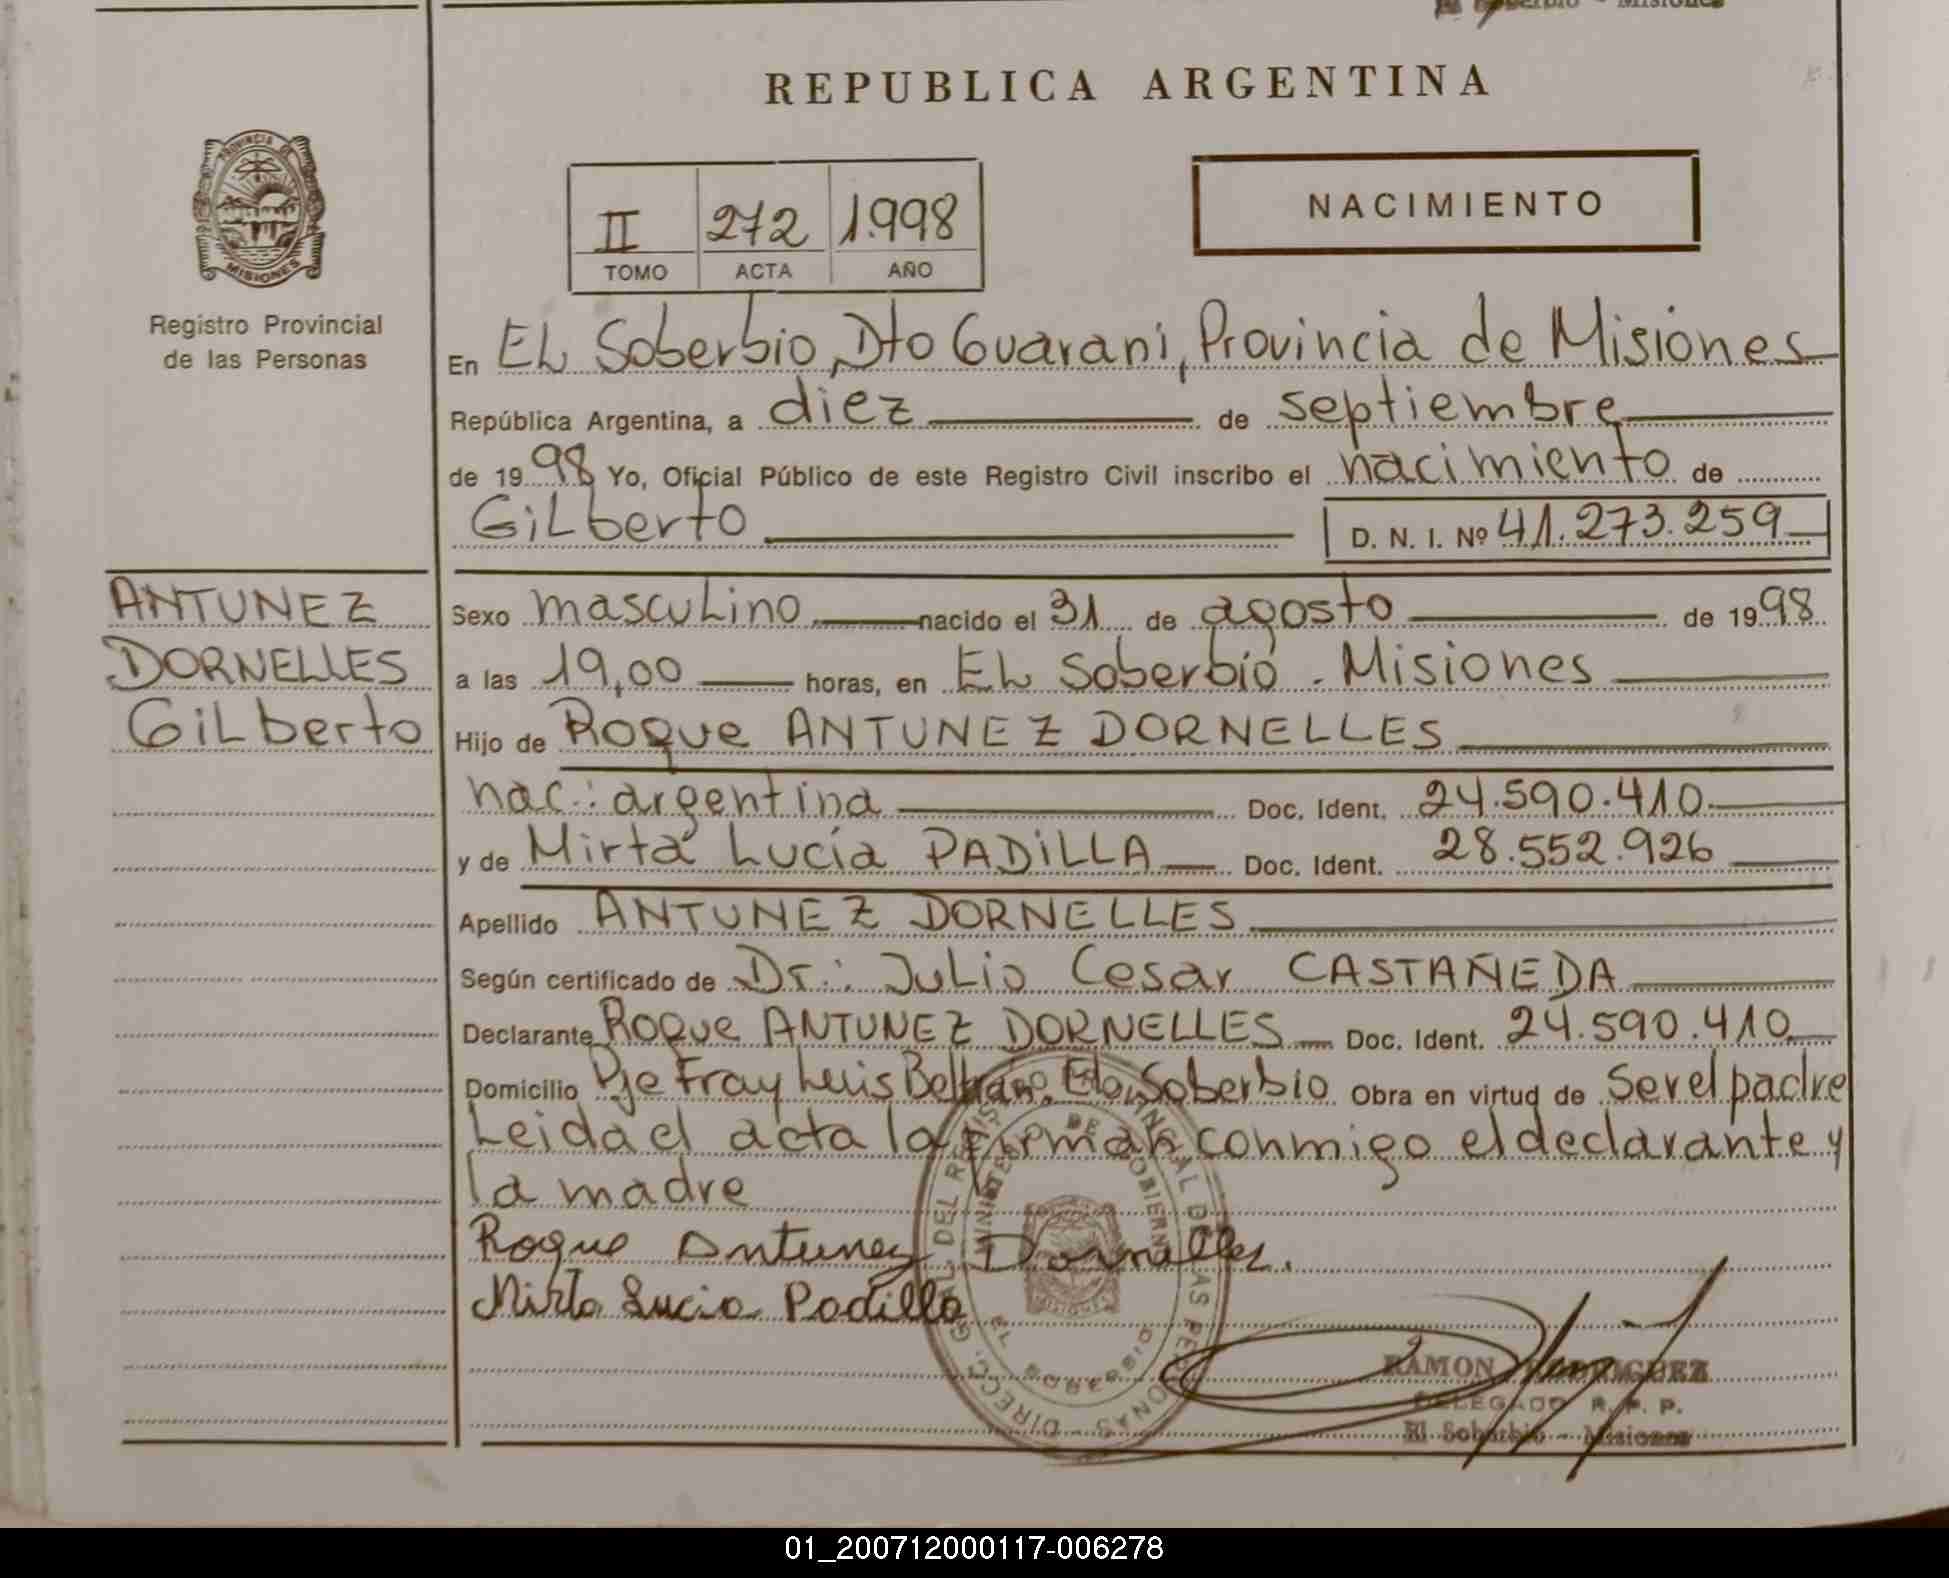 REPUBLICA ARGENTINA
PROVINCIA DE
MISIONES
Registro Provincial
de las Personas
II 272 1.998
TOMO ACTA AÑO
NACIMIENTO
En EL Soberbio, Dto Guaraní, Provincia de Misiones
República Argentina, a diez de septiembre
de 1998 Yo, Oficial Público de este Registro Civil inscribo el nacimiento de
GiLberto D. N. I. Nº 41.273.259
ANTUNEZ
DORNELLES
GiLberto
Sexo mascuLino nacido el 31 de agosto de 1998
a las 19,00 horas, en EL Soberbio - Misiones
Hijo de Roque ANTUNEZ DORNELLES
nac.: argentina Doc. Ident. 24.590.410
y de Mirta Lucía PADiLLA Doc. Ident. 28.552.926
Apellido ANTUNEZ DORNELLES
Según certificado de Dr.: JuLio Cesar CASTAÑEDA
Declarante Roque ANTUNEZ DORNELLES Doc. Ident. 24.590.410
Domicilio Pje Fray Luis Beltrán, El Soberbio Obra en virtud de ser el padre
Leida el acta la firman conmigo el declarante y
la madre
Roque Antunez Dornelles.
Mirta Lucia Padilla
DIRECC. GRAL. DEL REGISTRO PROVINCIAL DE LAS PERSONAS
MINISTERIO DE GOBIERNO
MISIONES
EL SOBERBIO
RAMON RODRIGUEZ
DELEGADO R. P. P.
El Soberbio - Misiones
01_200712000117-006278